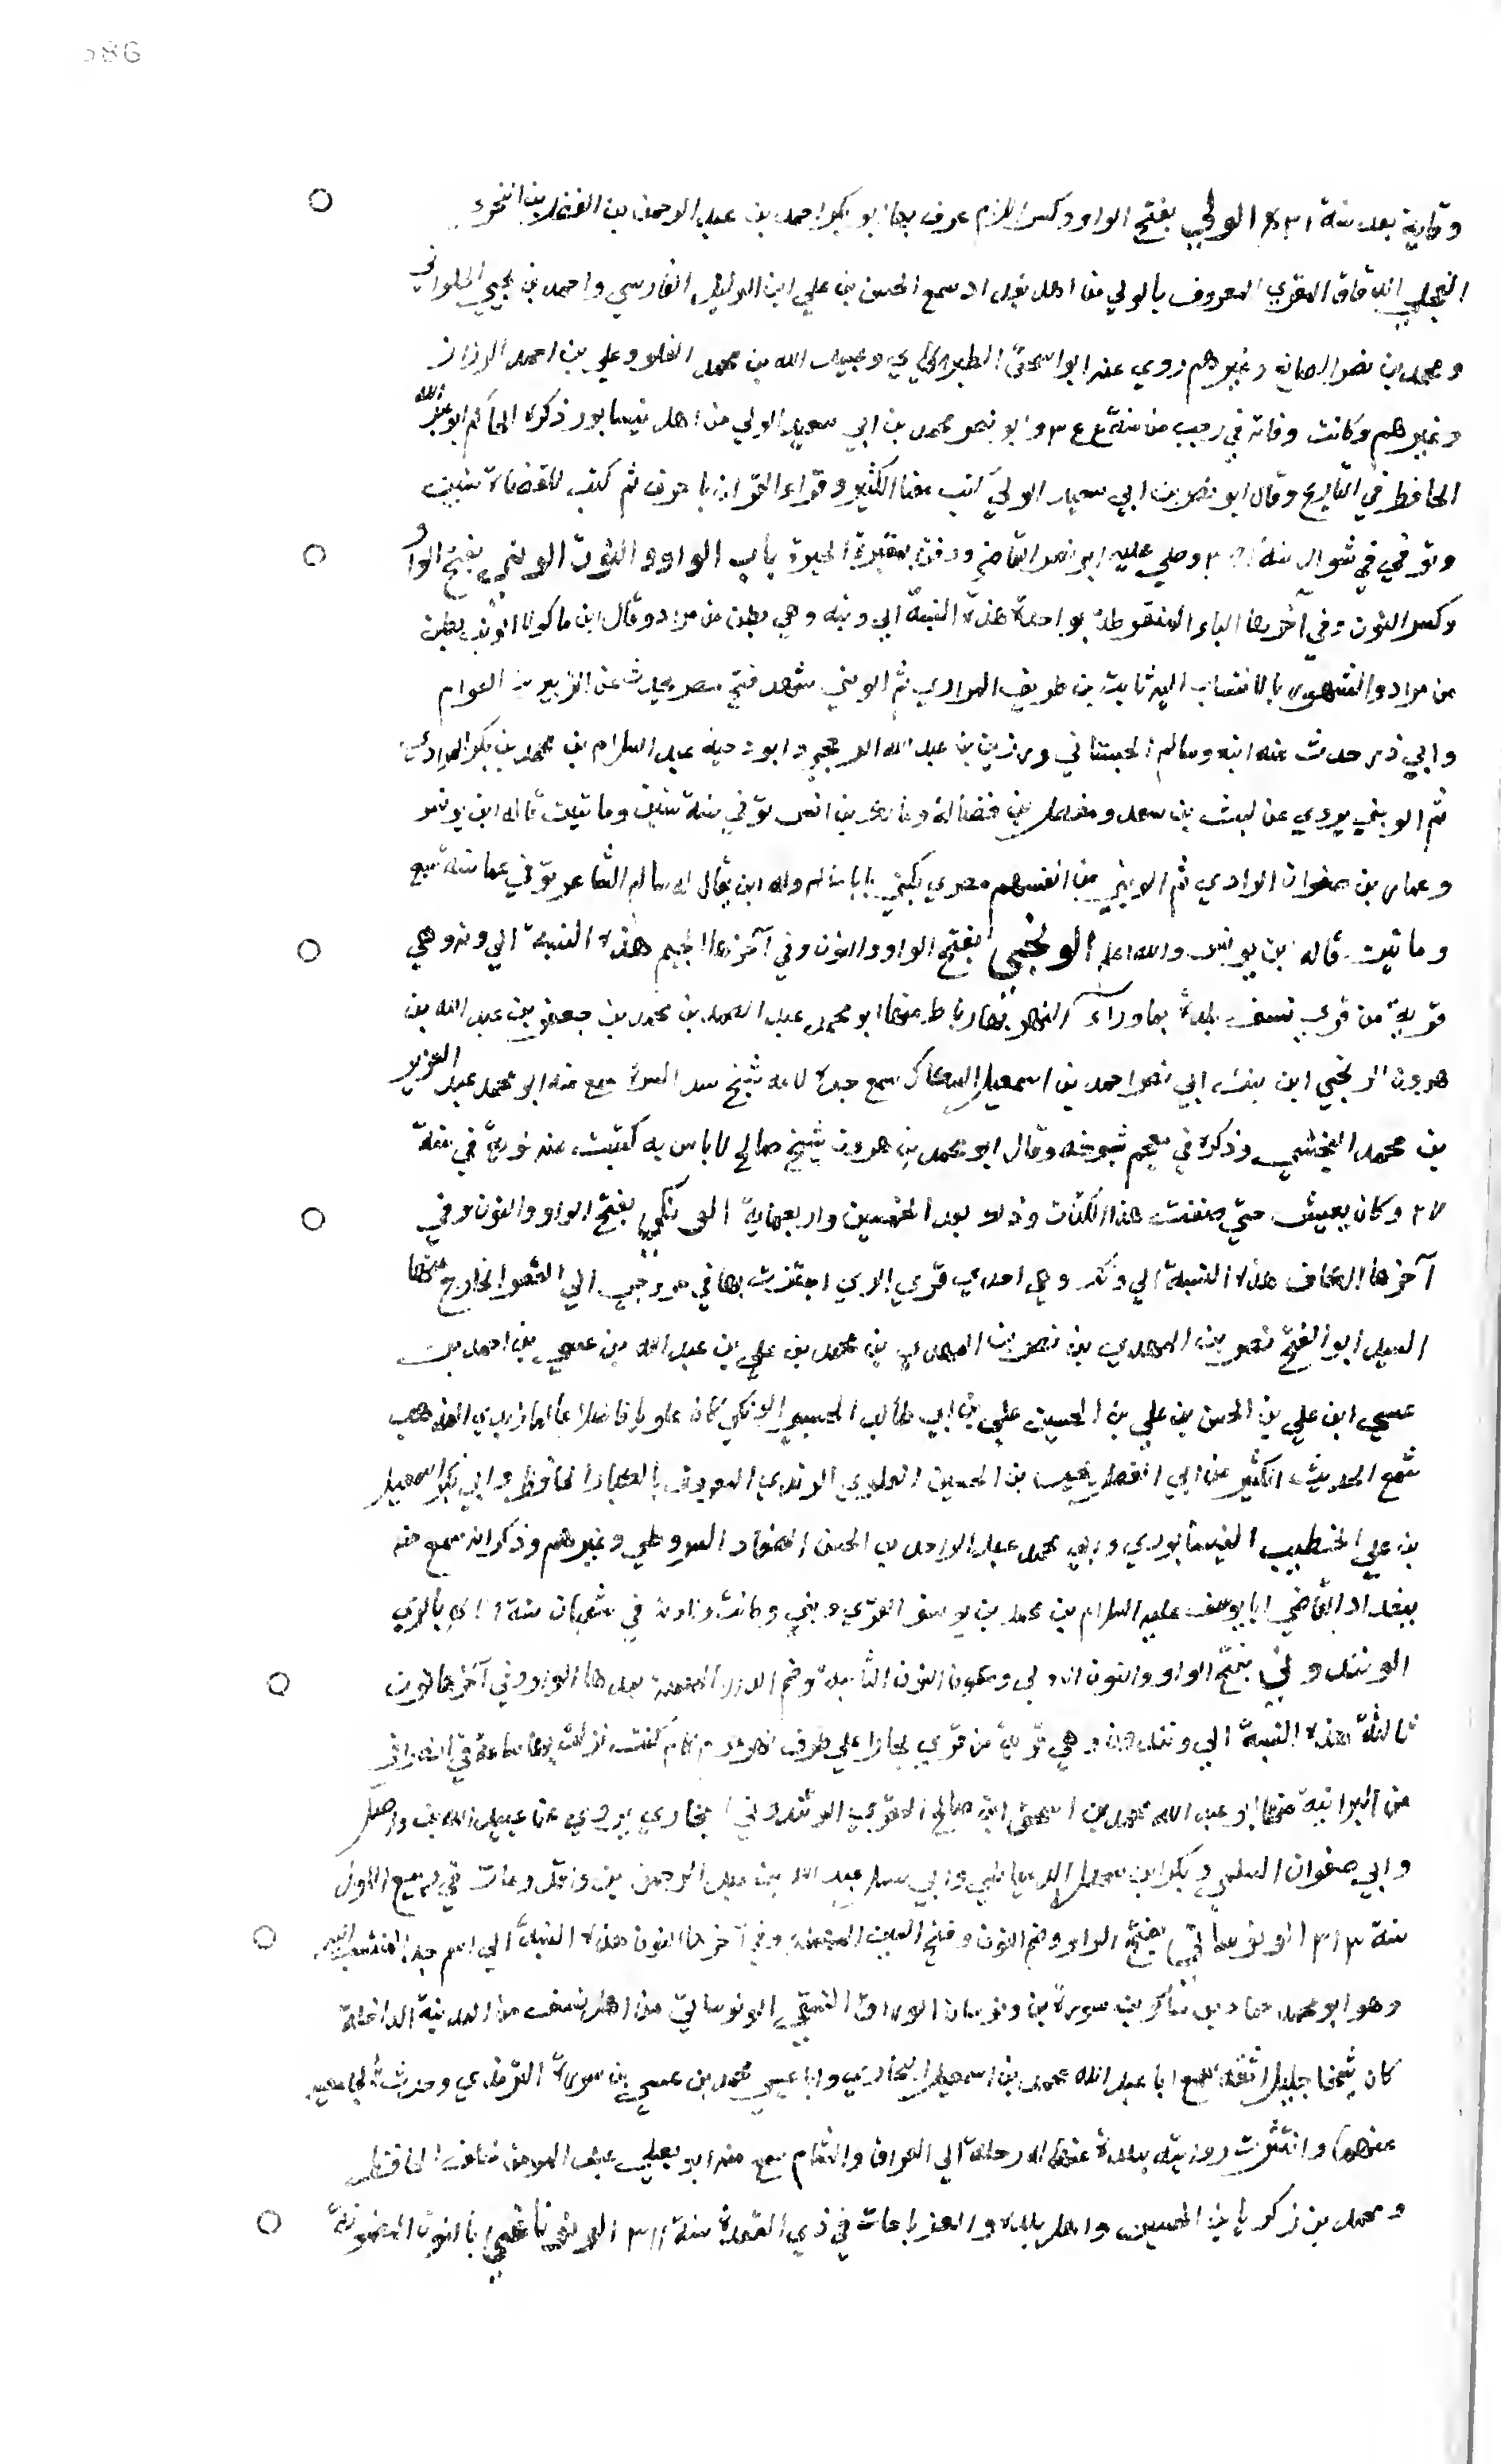 586
وفاته بعد سنة الولي بفتح الواو وكسر اللام عرف بها ابو بكر احمد بن عبد الرحمن بن الفضل بن
العجلي الدقاق المقري المعروف بالولي من اهل بغداد سمع الحسن بن علي ابن الوليد الفارسي واحمد بن يحيى الحلواني
ومحمد بن نصر الصايغ وغيرهم روي عنه ابو اسحق الطبري وعبيد الله بن محمد وعلي بن احمد الرزاز
وغيرهم وكانت وفاته في رجب من سنة ٣٤٤ وابو نصر محمد بن ابي سعيد الولي من اهل نيسابور ذكره الحاكم ابو عبد الله
الحافظ في التاريخ وقال ابو نصر بن ابي سعيد الولي كتب معنا الكثير وقراء القران باحرف ثم كتب للقضاة سنين
وتوفي في شوال سنة وصلى عليه ابو نصر القاضي ودفن بمقبرة الحيرة باب الواو والنون الونبي بفتح الواو
وكسر النون وفي آخرها الباء المنقوطة بواحدة هذه النسبة الي ونبه وهي بطن من مراد وقال ابن ماكولا بطن
من مراد والمشهور بالانتساب اليه ثابت بن طريف المرادي ثم الونبي شهد فتح مصر يحدث عن الزبير بن العوام
وابي ذر حدث عنه ابنه وسالم الجيشاني ورزين بن عبد الله وابو دحية عبد السلام بن محمد بن بكر المرادي
ثم الونبي يروي عن ليث بن سعد ومفضل بن فضالة ومالك بن انس توفي سنة ومائتين قاله ابن يونس
وعمار بن صفوان المرادي ثم الونبي من انفسهم مصري يكني ابا سالم وله ابن يقال له سالم الشاعر توفي عمار سنة سبع
ومائتين قاله ابن يونس والله اعلم الونجي بفتح الواو والنون وفي آخرها الجيم هذه النسبة الي ونه وهي
قرية من قري نسف بلدة بما وراء النهر بها رباط منها ابو محمد عبد الصمد بن محمد بن جعفر بن عبد الله بن
هرون الونجي ابن بنت ابي نصر احمد بن اسمعيل السكاك سمع جده لامه شيخ سمع منه ابو محمد عبد العزيز
بن محمد النخشبي وذكره في معجم شيوخه وقال ابو محمد بن هرون شيخ صالح لا باس به كتبت عنه في سنة
٢٧ وكان يعيش حتي صنفت هذا الكتاب وذلك بعد الخمسين واربعمايه الونكي بفتح الواو والنون وفي
آخرها الكاف هذه النسبة الي ونك وهي احدي قري الري اجتزت بها في خروجي الي القصر الخارج منها
السيد ابو الفتح نصر بن المهدي بن نصر بن المهدي بن محمد بن علي بن عبد الله بن عيسي بن احمد بن
عيسي ابن علي بن الحسن بن علي بن الحسين علي بن ابي طالب الحسيني الونكي كان علويا فاضلا عالما زيدي المذهب
سمع الحديث الكثير من ابي الفضل يحيى بن الحسين العلوي الزيدي المعروف بالكيا الحافظ وابي بكر اسمعيل
بن علي الخطيب النيسابوري وابي محمد عبد الواحد بن الحسن الصفار الشروطي وغيرهم وذكر انه سمع منه
ببغداد القاضي ابا يوسف عبد السلام بن محمد بن يوسف القزويني وكانت ولادته في شعبان سنة بالري
الوننذوني بفتح الواو والنون الاولي وسكون النون الثانية وضم الدال المعجمة بعدها الواو وفي آخرها نون
ثالثة هذه النسبة الي وننذون وهي قرية من قري بخارا علي طرف كنت نزلت بها ساعة في انصرافي
من البرانية منها ابو عبد الله محمد بن اسحق ابن صالح المقري الوننذوني البخاري يروي عن عبيد الله بن واصل
وابي صفوان السلمي وبكر بن سهل الدمياطي وابي سهل عبيد الله بن عبد الرحمن بن واقد ومات في ربيع الاول
سنة ٣١٣ الونوساني بفتح الواو وضم النون وفتح السين المهملة وفي آخرها النون هذه النسبة الي اسم جد المنتسب اليه
وهو ابو محمد حماد بن شاكر بن سورة بن ونوسان الوراق النسفي الونوساني من اهل نسف من المدينة الداخلة
كان شيخا جليلا ثقة سمع ابا عبد الله محمد بن اسمعيل البخاري وابا عيسي محمد بن عيسي بن سورة الترمذي وحدث
عنهما وانتشرت روايته ببلدة عنهما له رحلة الي العراق والشام سمع منه ابو يعلى عبد المومن خلف الحافظ
ومحمد بن زكريا بن الحسين واهل بلده والغرباء مات في ذي القعدة سنة ٣١١ بالنون المضمومة